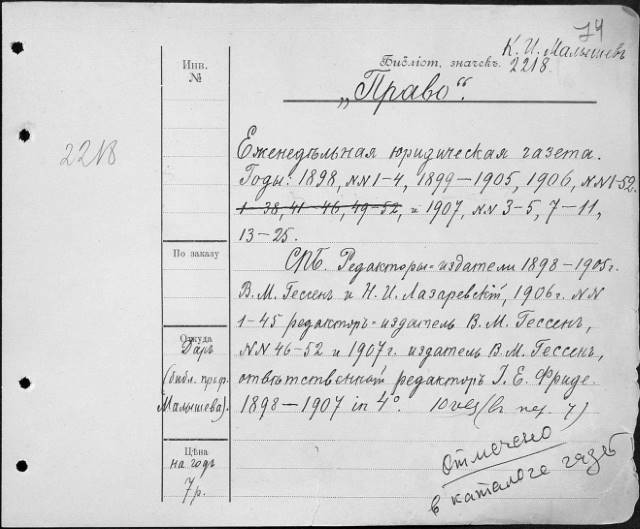 74
К. И. Малышев
Библіот. значекъ.
2218.
Инв.
№
„Право“.
2218
Еженедѣльная юридическая газета.
Годы: 1898, NN 1-4, 1899-1905, 1906, NN 1-52.
1-38, 41-46, 49-52, и 1907, NN 3-5, 7-11,
13-25.
По заказу
СПБ. Редакторы-издатели 1898-1905 г.
В. М. Гессенъ и Н. И. Лазаревскій, 1906 г. NN
1-45 редакторъ-издатель В. М. Гессенъ,
NN 46-52 и 1907 г. издатель В. М. Гессенъ,
отвѣтственный редакторъ І. Е. Фриде.
1898-1907 in 4°. 10
Откуда
Даръ
(библ. проф.
Малышева).
Цѣна
на годъ
7 р.
Отмечено
в каталоге газет